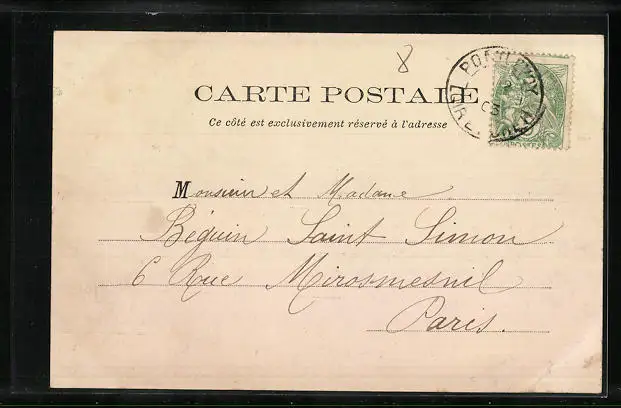 8
CARTE POSTALE
Ce côté est exclusivement réservé à l'adresse
PONTLEVOY
LOIR-ET-CHER
Monsieur et Madame
Béguin Saint Simon
6 Rue Miromesnil
Paris.